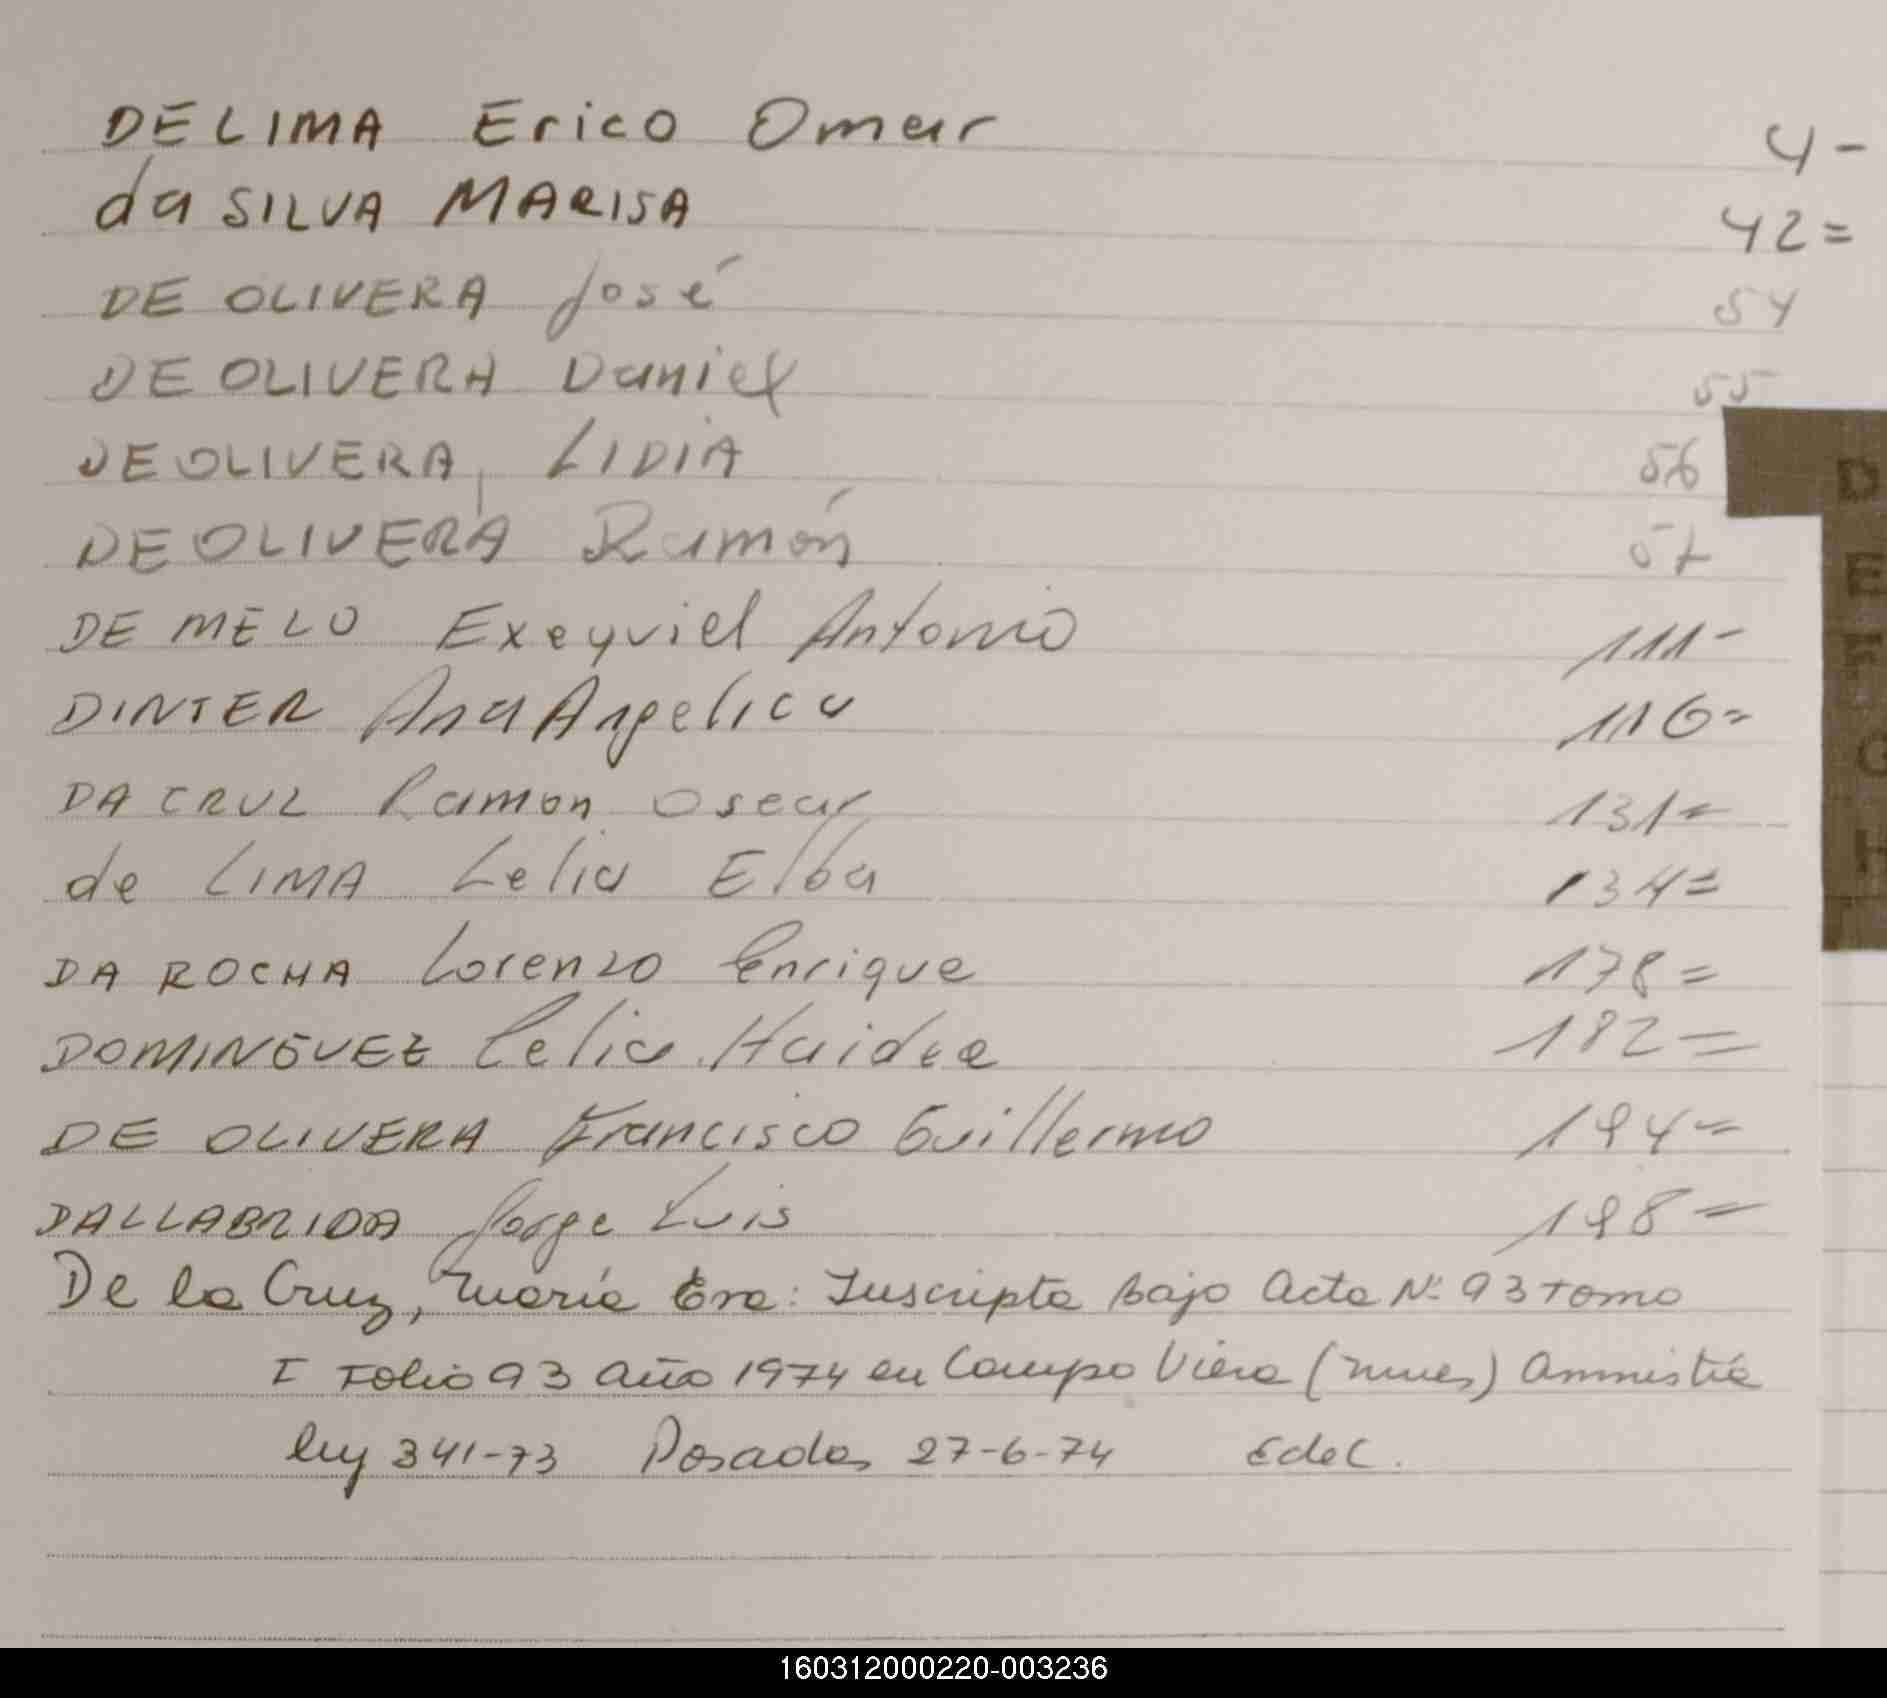 DELIMA Erico Omar 4-
da SILVA MARISA 42=
DE OLIVERA José 54
DE OLIVERA Daniel 55
DE OLIVERA, LIDIA 56
DE OLIVERA Ramón 57
DE MELO Exequiel Antonio 111-
DINTER Ana Angelica 116=
DA CRUZ Ramon Oscar 131=
de LIMA Lelia Elba 134=
DA ROCHA Lorenzo Enrique 178=
DOMINGUEZ Celia Haidee 182=
DE OLIVERA Francisco Guillermo 194=
DALLABRIDA Jorge Luis 198=
De la Cruz, María Eva: Inscripta Bajo Acta Nº 93 Tomo
I Folio 93 Año 1974 en Campo Viera (Mnes) Amnistía
ley 341-73 Posadas 27-6-74 EdeC.
D
E
F
G
H
160312000220-003236